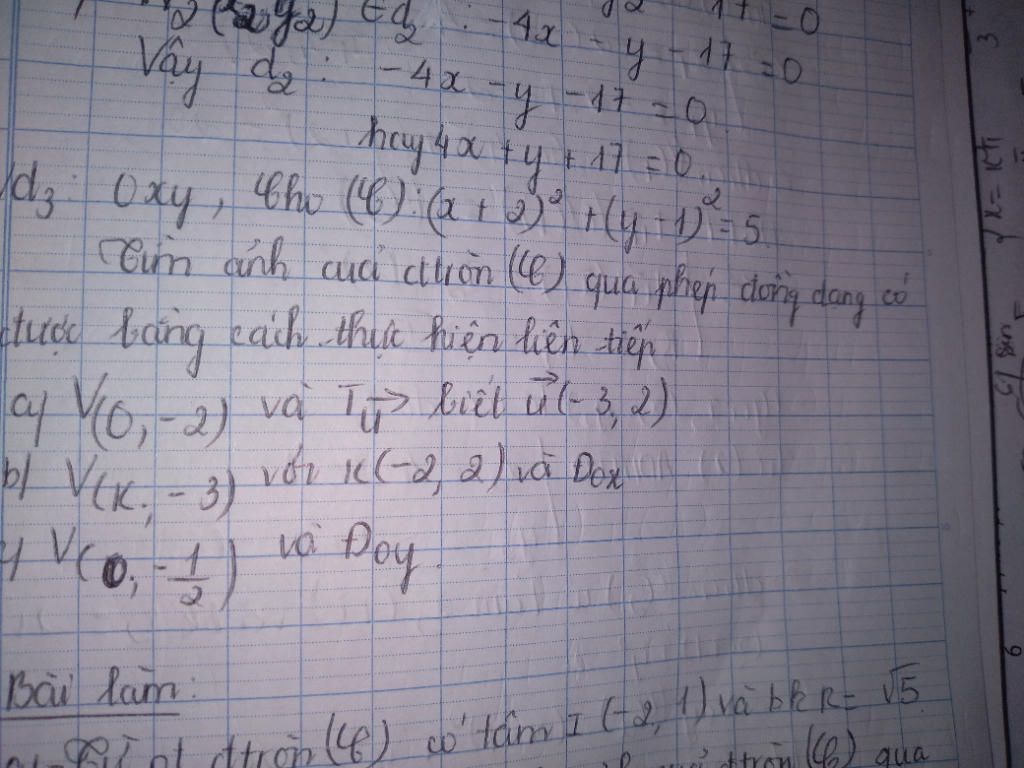 ∈ d₂ : -4x - y - 17 = 0
Vậy d₂ : -4x - y - 17 = 0
hay 4x + y + 17 = 0.
Vd₃: Oxy, cho (C): (x + 2)² + (y - 1)² = 5.
Tìm ảnh của đtròn (C) qua phép đồng dạng có
được bằng cách thực hiện liên tiếp
a) V(O, -2) và Tᵤ⃗ biết u⃗(-3, 2)
b) V(K, -3) với K(-2, 2) và Đox
c) V(O, -1/2) và Đoy.
Bài làm:
a) Từ pt đtròn (C) có tâm I(-2, 1) và bk R = √5
đtròn (C) qua
3
x = kπ
sin
6